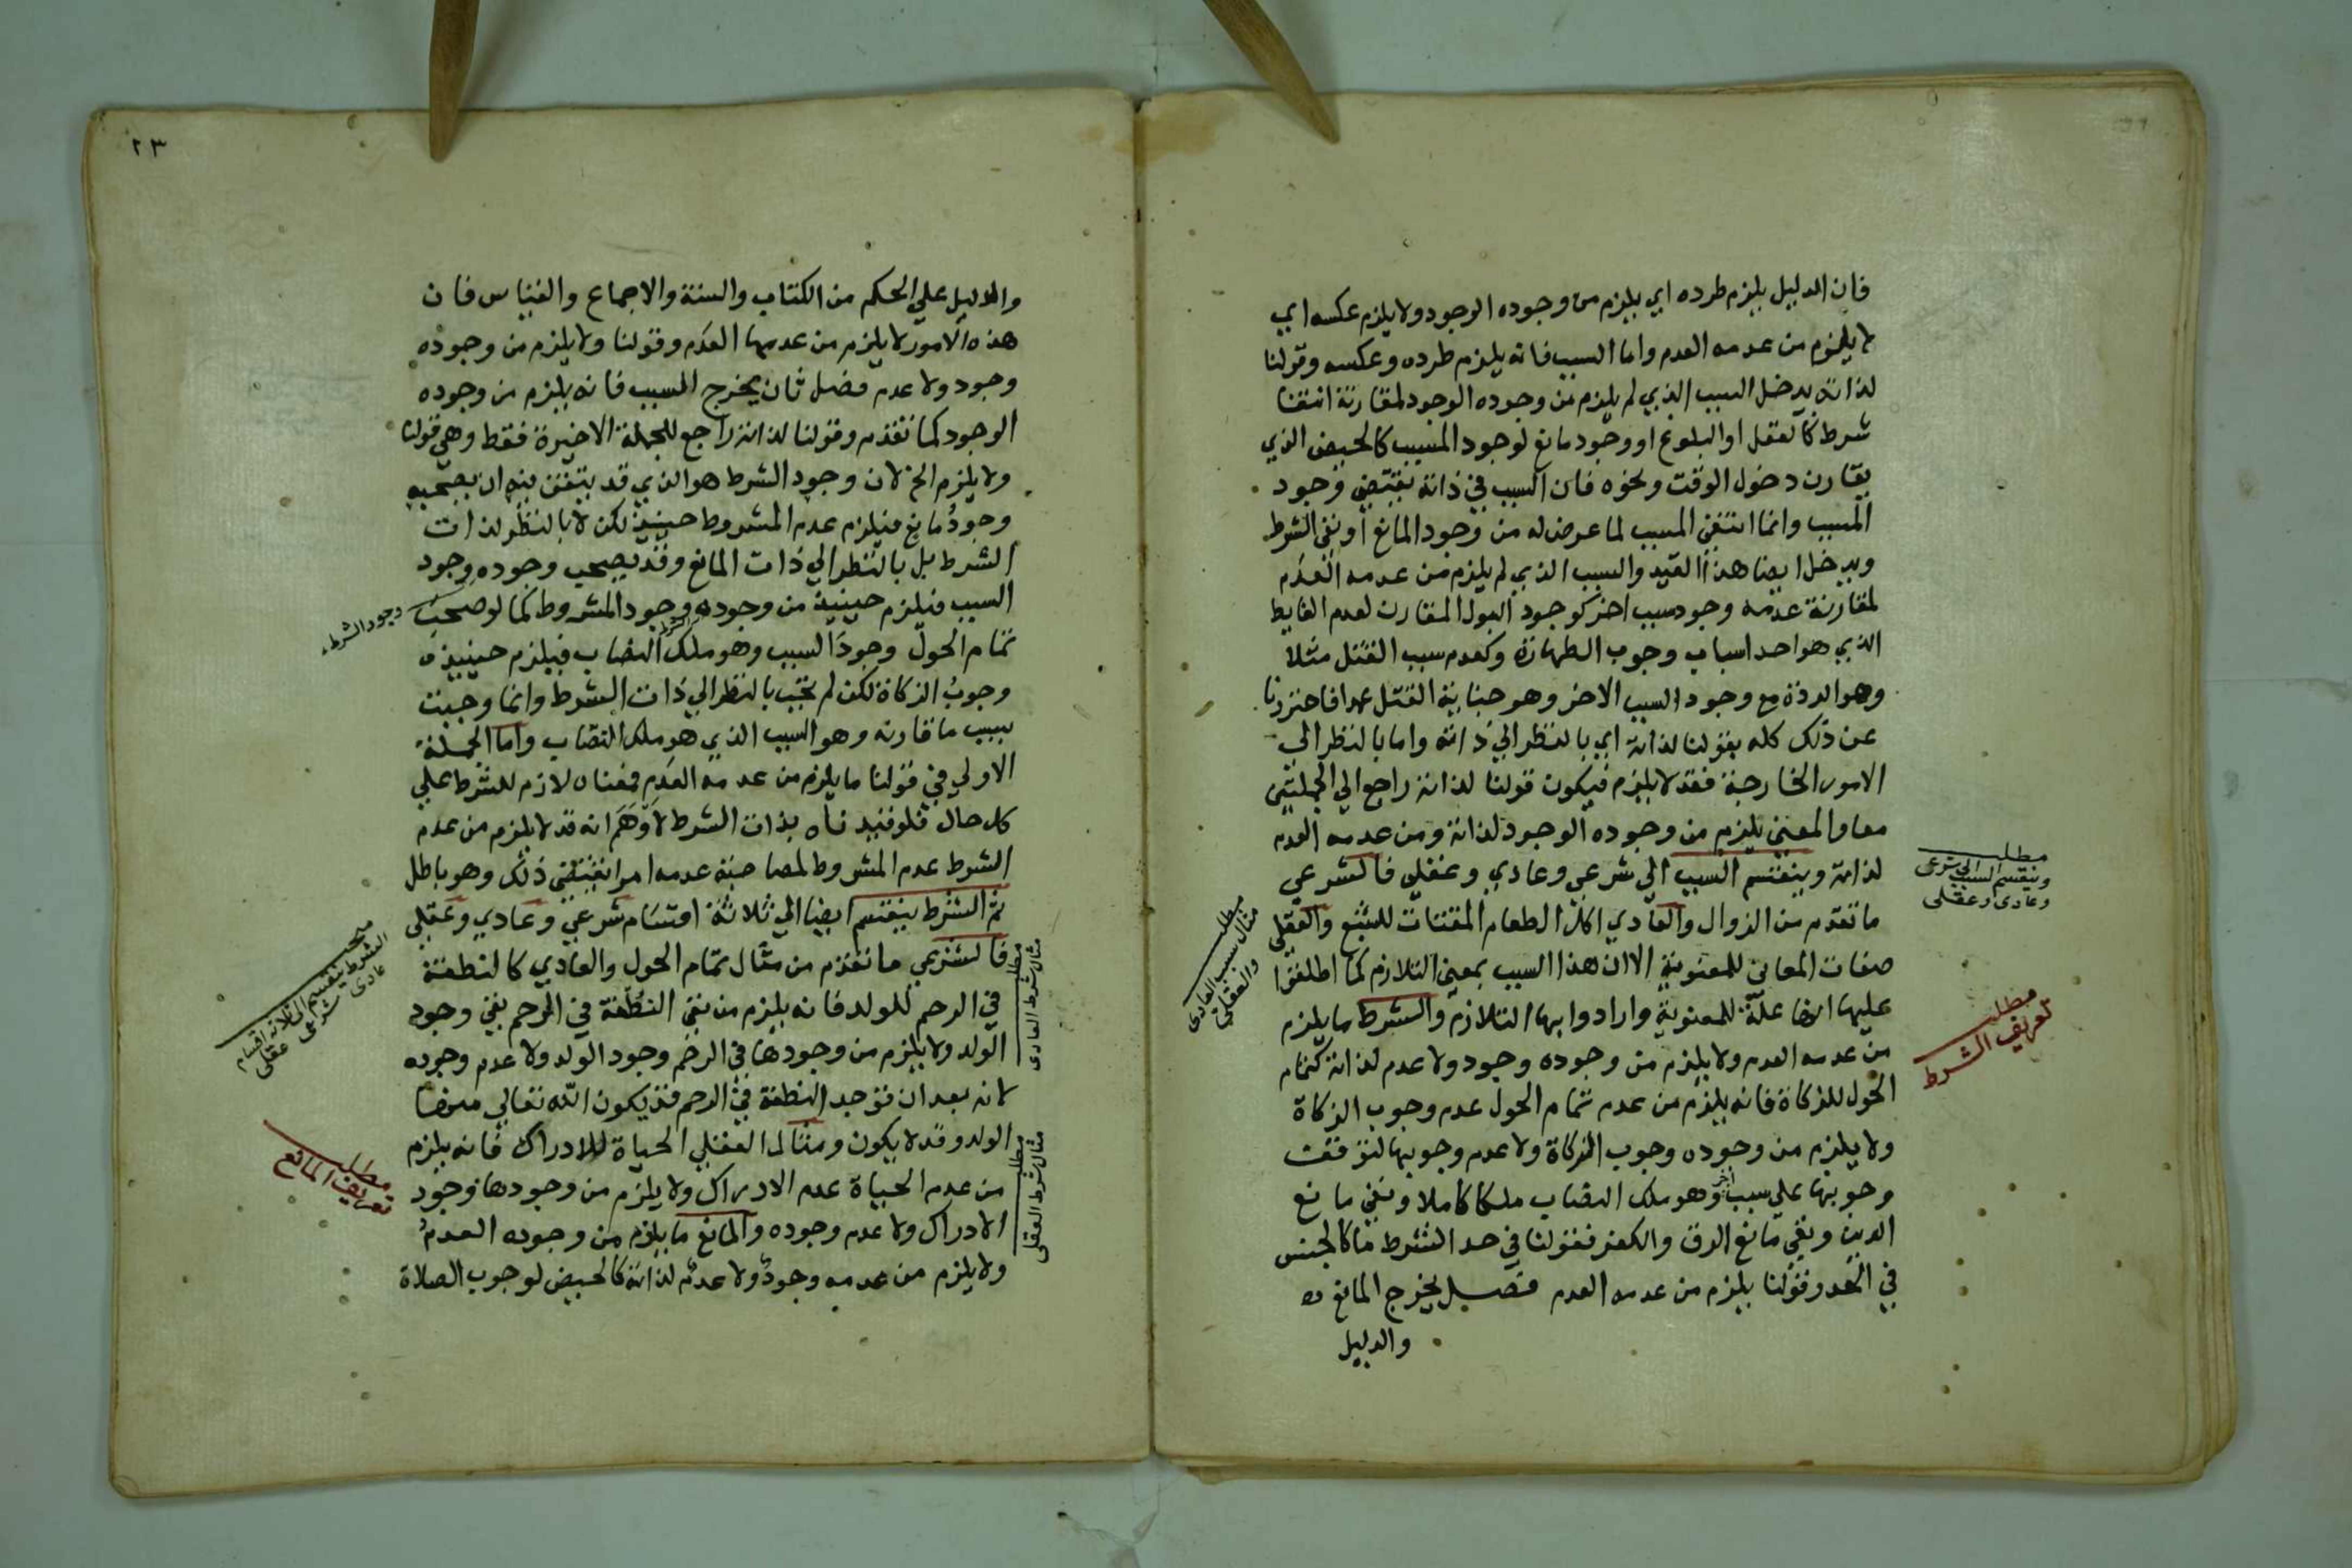 فان الدليل يلزم طرده اي يلزم من وجوده الوجود ولا يلزم عكسه اي
لا يلزم من عدمه العدم واما السبب فانه يلزم طرده وعكسه وقولنا
لذاته يدخل السبب الذي لم يلزم من وجوده الوجود لمقارنة انتفا
شرط كالعقل او البلوغ او وجود مانع لوجود المسبب كالحيض الذي
يقارن دخول الوقت ونحوه فان السبب في ذاته يقتضي وجود
المسبب وانما انتفى المسبب لما عرض له من وجود المانع أو نفي الشرط
ويدخل ايضا هذا القيد والسبب الذي لم يلزم من عدمه العدم
لمقارنة عدمه وجود سبب اخر كوجود البول المقارن لعدم الغايط
الذي هو احد اسباب وجوب الطهارة وكعدم سبب القتل مثلا
وهو الردة مع وجود السبب الاخر وهو جناية القتل عمدا فاحترزنا
عن ذلك كله بقولنا لذاته اي بالنظر الي ذاته واما بالنظر الي
الامور الخارجة فقد لا يلزم فيكون قولنا لذاته راجع الي الجملتين
معا والمعنى يلزم من وجوده الوجود لذاته ومن عدمه العدم
لذاته وينقسم السبب الي شرعي وعادي وعقلي فالشرعي
ما تقدم من الزوال والعادي اكل الطعام المقتات للشبع والعقلي
صفات المعاني للمعنوية الا ان هذا السبب بمعنى التلازم كما اطلقوا
عليها انها علة للمعنوية وارادوا بها التلازم والشرط ما يلزم
من عدمه العدم ولا يلزم من وجوده وجود ولا عدم لذاته كتمام
الحول للزكاة فانه يلزم من عدم تمام الحول عدم وجوب الزكاة
ولا يلزم من وجوده وجوب الزكاة ولا عدم وجوبها لتوقف
وجوبها علي سبب آخر وهو ملك النصاب ملكا كاملا ونفي مانع
الدين ونفي مانع الرق والكفر فقولنا في حد الشرط ما كالجنس
في الحد وقولنا يلزم من عدمه العدم فصل يخرج المانع
والدليل
مطلب
وينقسم السبب الى شرعى
وعادى وعقلى
مطلب
تعريف الشرط
مطلب
مثال سبب العادى
والعقلي
٢٣
والدليل علي الحكم من الكتاب والسنة والاجماع والقياس فان
هذه الامور لا يلزم من عدمها العدم وقولنا ولا يلزم من وجوده
وجود ولا عدم فصل ثان يخرج السبب فانه يلزم من وجوده
الوجود كما تقدم وقولنا لذاته راجع للجملة الاخيرة فقط وهي قولنا
ولا يلزم الخ لان وجود الشرط هو الذي قد يتفق فيه ان يصحبه
وجود مانع فيلزم عدم المشروط حينيذ لكن لا بالنظر لذات
الشرط بل بالنظر الي ذات المانع وقد يصحب وجوده وجود
السبب فيلزم حينيذ من وجوده وجود المشروط كما لو صحب
تمام الحول وجود السبب وهو ملك النصاب فيلزم حينيذ
وجوب الزكاة لكن لم تجب بالنظر الي ذات الشرط وانما وجبت
بسبب ما قارنه وهو السبب الذي هو ملك النصاب واما الجملة
الاولي في قولنا ما يلزم من عدمه العدم فمعناه لازم للشرط علي
كل حال فلو قيدناه بذات الشرط لاوهم انه قد لا يلزم من عدم
الشرط عدم المشروط لمصاحبة عدمه امرا يقتضي ذلك وهو باطل
ثم الشرط ينقسم ايضا الي ثلاثة اقسام شرعي وعادي وعقلي
فالشرعي ما تقدم من مثال تمام الحول والعادي كالنطفة
في الرحم للولد فانه يلزم من نفي النطفة في الرحم نفي وجود
الولد ولا يلزم من وجودها في الرحم وجود الولد ولا عدم وجوده
لانه بعد ان توجد النطفة في الرحم قد يكون الله تعالي منها
الولد وقد لا يكون ومثال العقلي الحياة للادراك فانه يلزم
من عدم الحياة عدم الادراك ولا يلزم من وجودها وجود
الادراك ولا عدم وجوده والمانع ما يلزم من وجوده العدم
ولا يلزم من عدمه وجود ولا عدم لذاته كالحيض لوجوب الصلاة
وجود الشرط
الشرط
مبحث
الشرط ينقسم الى ثلاثة اقسام
عادى شرعى عقلى
مطلب
تعريف المانع
مطلب
مثال شرط العادى
مطلب
مثال شرط العقلى